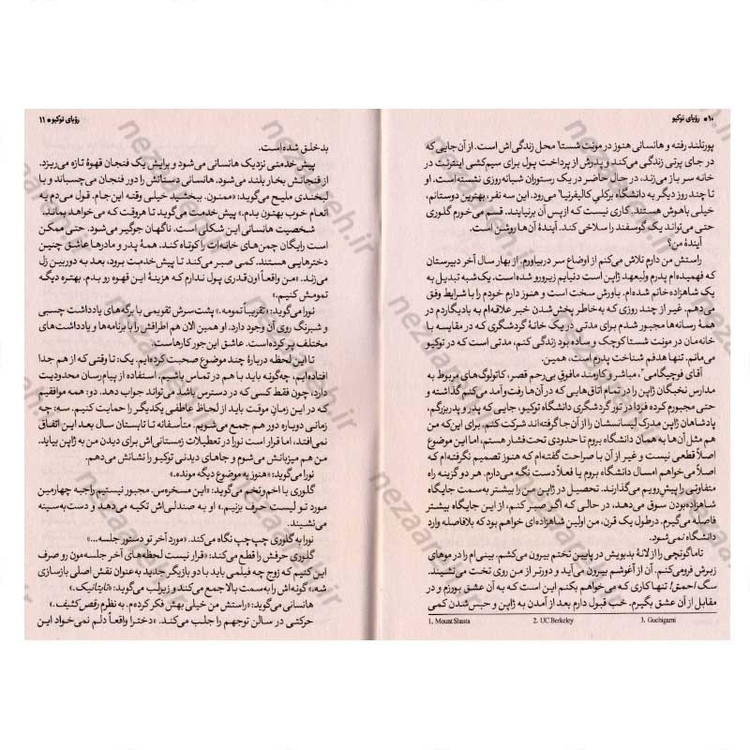 ۱۰ • رؤیای توکیو
پورتلند رفته و هانسانی هنوز در مونت شستا¹ محل زندگی‌اش است. از آن جایی که
در جای پرتی زندگی می‌کند و پدرش از پرداخت پول برای سیم‌کشی اینترنت در
خانه سر باز می‌زند، در حال حاضر در یک رستوران شبانه‌روزی نشسته است. او
تا چند روز دیگر به دانشگاه برکلی کالیفرنیا² می‌رود. این سه نفر، بهترین دوستانم،
خیلی باهوش هستند. کاری نیست که از پس آن برنیایند. قسم می‌خورم گلوری
حتی می‌تواند یک گوسفند را سلاخی کند. آیندهٔ آن‌ها روشن است.
آیندهٔ من؟
راستش من دارم تلاش می‌کنم از اوضاع سر دربیاورم. از بهار سال آخر دبیرستان
که فهمیده‌ام پدرم ولیعهد ژاپن است دنیایم زیرورو شده است. یک‌شبه تبدیل به
یک شاهزاده‌خانم شده‌ام. باورش سخت است و هنوز دارم خودم را با شرایط وفق
می‌دهم. غیر از چند روزی که به‌خاطر پخش شدن خبر علاقه‌ام به بادیگاردم در
همهٔ رسانه‌ها مجبور شدم برای مدتی در یک خانهٔ گردشگری که در مقایسه با
خانه‌مان در مونت شستا کوچک و ساده بود زندگی کنم، مدتی است که در توکیو
می‌مانم. تنها هدفم شناخت پدرم است، همین.
آقای فوچیگامی³، مباشر و کارمند مافوق بی‌رحم قصر، کاتولوگ‌های مربوط به
مدارس نخبگان ژاپن را در تمام اتاق‌هایی که در آن‌ها رفت وآمد می‌کنم گذاشته و
حتی مجبورم کرده فردا در تور گردشگری دانشگاه توکیو، جایی که پدر و پدربزرگم،
پادشاهان ژاپن مدرک لیسانسشان را از آن جا گرفته‌اند شرکت کنم. برای این‌که من
هم مثل آن‌ها به همان دانشگاه بروم تا حدودی تحت‌فشار هستم، اما این موضوع
اصلاً قطعی نیست و غیر از آن با صراحت گفته‌ام که هنوز تصمیم نگرفته‌ام که
اصلاً می‌خواهم امسال دانشگاه بروم یا فعلاً دست نگه می‌دارم. هر دو گزینه راه
متفاوتی را پیش رویم می‌گذارند. تحصیل در ژاپن من را بیشتر به سمت جایگاه
شاهزاده‌بودن سوق می‌دهد، در حالی که اگر صبر کنم، از این جایگاه بیشتر
فاصله می‌گیرم. در طول یک قرن، من اولین شاهزاده‌ای خواهم بود که بلافاصله وارد
دانشگاه نمی‌شود.
تاماگوتچی را از لانهٔ بدبویش در پایین تختم بیرون می‌کشم. بینی‌ام را در موهای
زبرش فرومی‌کنم. از آغوشم بیرون می‌آید و دورتر از من روی تخت می‌نشیند.
سگ احمق! تنها کاری که می‌خواهم بکنم این است که به آن عشق بورزم و در
مقابل از آن عشق بگیرم. خب قبول دارم بعد از آمدن به ژاپن و حبس شدن کمی
1. Mount Shasta 2. UC Berkeley 3. Guchigami
رؤیای توکیو • ۱۱
بدخلق شده است.
پیش‌خدمتی نزدیک هانسانی می‌شود و برایش یک فنجان قهوهٔ تازه می‌ریزد.
از فنجانش بخار بلند می‌شود. هانسانی دستانش را دور فنجان می‌چسباند و با
لبخندی ملیح می‌گوید: «ممنون. ببخشید خیلی وقته این‌جام. قول می‌دم یه
انعام خوب بهتون بدم.» پیش‌خدمت می‌گوید تا هروقت که می‌خواهد بماند.
شخصیت هانسانی این شکلی است. ناگهان جوگیر می‌شود. حتی ممکن
است رایگان چمن‌های خانه‌ات را کوتاه کند. همهٔ پدر و مادرها عاشق چنین
دخترهایی هستند. کمی صبر می‌کند تا پیش‌خدمت برود، بعد به دوربین زل
می‌زند. «من واقعاً اون‌قدری پول ندارم که هزینهٔ این قهوه رو بدم. بهتره دیگه
تمومش کنیم.»
نورا می‌گوید: «تقریباً تمومه.» پشت‌سرش تقویمی با برگه‌های یادداشت چسبی
و شبرنگ روی آن وجود دارد. او همین الان هم اطرافش را با برنامه‌ها و یادداشت‌های
مختلف پر کرده است. عاشق این‌جور کارهاست.
تا این لحظه دربارهٔ چند موضوع صحبت کرده‌ایم. یک: تا وقتی که از هم جدا
افتاده‌ایم، چه‌گونه باید با هم در تماس باشیم، استفاده از پیام‌رسان محدودیت
دارد، چون فقط کسی که در دسترس باشد می‌تواند جواب دهد. دو: همه موافقیم
که در این زمانِ موقت باید از لحاظ عاطفی یکدیگر را حمایت کنیم. سه: چه
زمانی دوباره دور هم جمع می‌شویم. متأسفانه تا تابستان سال بعد این اتفاق
نمی‌افتد، اما قرار است نورا در تعطیلات زمستانی‌اش برای دیدن من به ژاپن بیاید.
من هم میزبانش می‌شوم و جاهای دیدنی توکیو را نشانش می‌دهم.
نورا می‌گوید: «هنوز یه موضوع دیگه مونده.»
گلوری با اخم‌وتخم می‌گوید: «این مسخره‌س. مجبور نیستیم راجبه چهارمین
مورد تو لیست حرف بزنیم.» او به صندلی‌اش تکیه می‌دهد و دست‌به‌سینه
می‌نشیند.
نورا به گلوری چپ‌چپ نگاه می‌کند. «مورد آخر تو دستور جلسه...»
گلوری حرفش را قطع می‌کند: «قرار نیست لحظه‌های آخر جلسه‌مون رو صرف
این کنیم که زوج چه فیلمی باید با دو بازیگر جدید به‌عنوان نقش اصلی بازسازی
شه.» گونه‌اش را به سمت بالا جمع می‌کند و زیرلب می‌گوید: «تایتانیک.»
هانسانی می‌گوید: «راستش من خیلی بهش فکر کرده‌م. به نظرم رقص کثیف.»
حرکتی در سالن توجهم را جلب می‌کند. «دخترا واقعاً دلم نمی‌خواد این